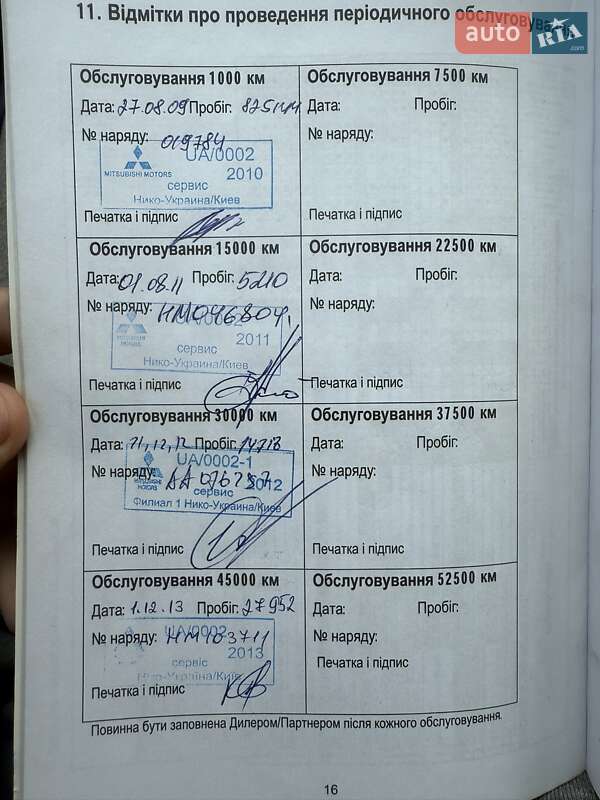 11. Відмітки про проведення періодичного обслуговування
auto RIA .com
Обслуговування 1000 км
Дата: 27.08.09 Пробіг:
№ наряду: 019784
MITSUBISHI MOTORS
UA/0002
2010
сервис
Нико-Украина/Киев
Печатка і підпис
Обслуговування 7500 км
Дата: Пробіг:
№ наряду:
Печатка і підпис
Обслуговування 15000 км
Дата: 01.08.11 Пробіг: 5210
№ наряду: НМ046804
MITSUBISHI MOTORS
UA/0002
2011
сервис
Нико-Украина/Киев
Печатка і підпис
Обслуговування 22500 км
Дата: Пробіг:
№ наряду:
Печатка і підпис
Обслуговування 30000 км
Дата: 21.12.12 Пробіг:
№ наряду:
MITSUBISHI MOTORS
UA/0002-1
2012
сервис
Филиал 1 Нико-Украина/Киев
Печатка і підпис
Обслуговування 37500 км
Дата: Пробіг:
№ наряду:
Печатка і підпис
Обслуговування 45000 км
Дата: 1.12.13 Пробіг: 27952
№ наряду: НМ103711
UA/0002
2013
сервіс
Нико-Україна/Київ
Печатка і підпис
Обслуговування 52500 км
Дата: Пробіг:
№ наряду:
Печатка і підпис
Повинна бути заповнена Дилером/Партнером після кожного обслуговування.
16